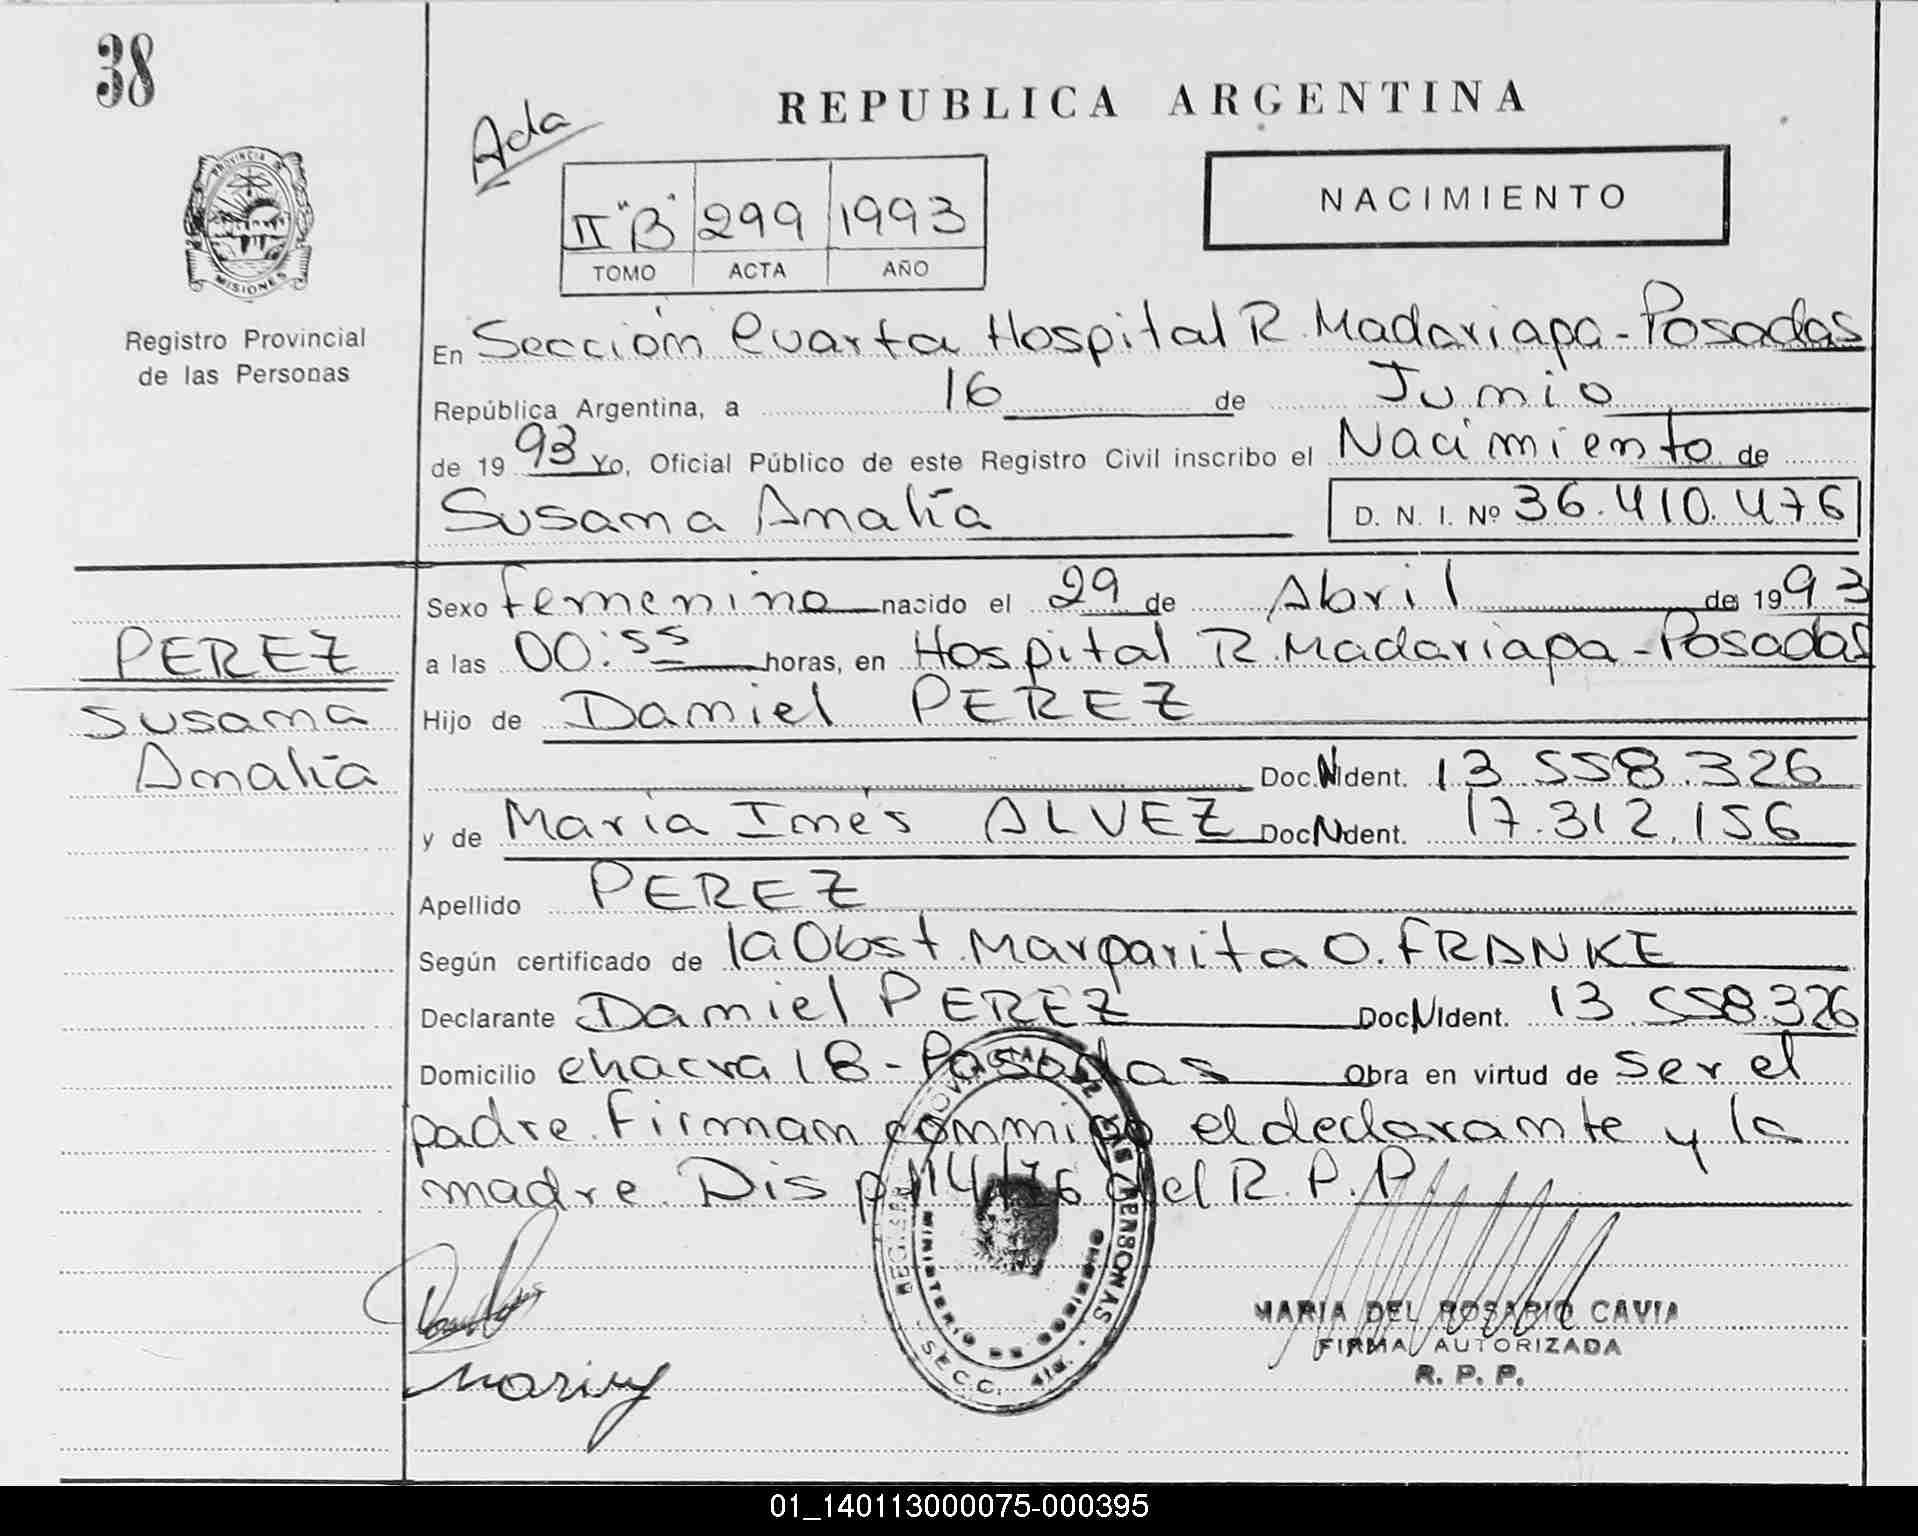 38
Ada
REPUBLICA ARGENTINA
NACIMIENTO
II "B" 299 1993
TOMO ACTA AÑO
PROVINCIA DE
MISIONES
Registro Provincial
de las Personas
En Sección Cuarta Hospital R. Madariaga - Posadas
República Argentina, a 16 de Junio
de 1993 Yo, Oficial Público de este Registro Civil inscribo el Nacimiento de
Susana Amalia
D. N. I. Nº 36.410.476
Sexo femenino nacido el 29 de Abril de 1993
a las 00:55 horas, en Hospital R. Madariaga - Posadas
PEREZ
Susana
Amalia
Hijo de Daniel PEREZ
Doc.N Ident. 13.558.326
y de María Inés ALVEZ Doc N dent. 17.312.156
Apellido PEREZ
Según certificado de la Obst. Margarita O. FRANKE
Declarante Daniel PEREZ Doc N Ident. 13.558.326
Domicilio chacra 18 - Posadas Obra en virtud de ser el
padre. Firman conmigo el declarante y la
madre. Disp 114/76 del R.P.P.
MINISTERIO DE GOBIERNO
SECC. 4ta.
MARIA DEL ROSARIO CAVIA
FIRMA AUTORIZADA
R. P. P.
01_140113000075-000395